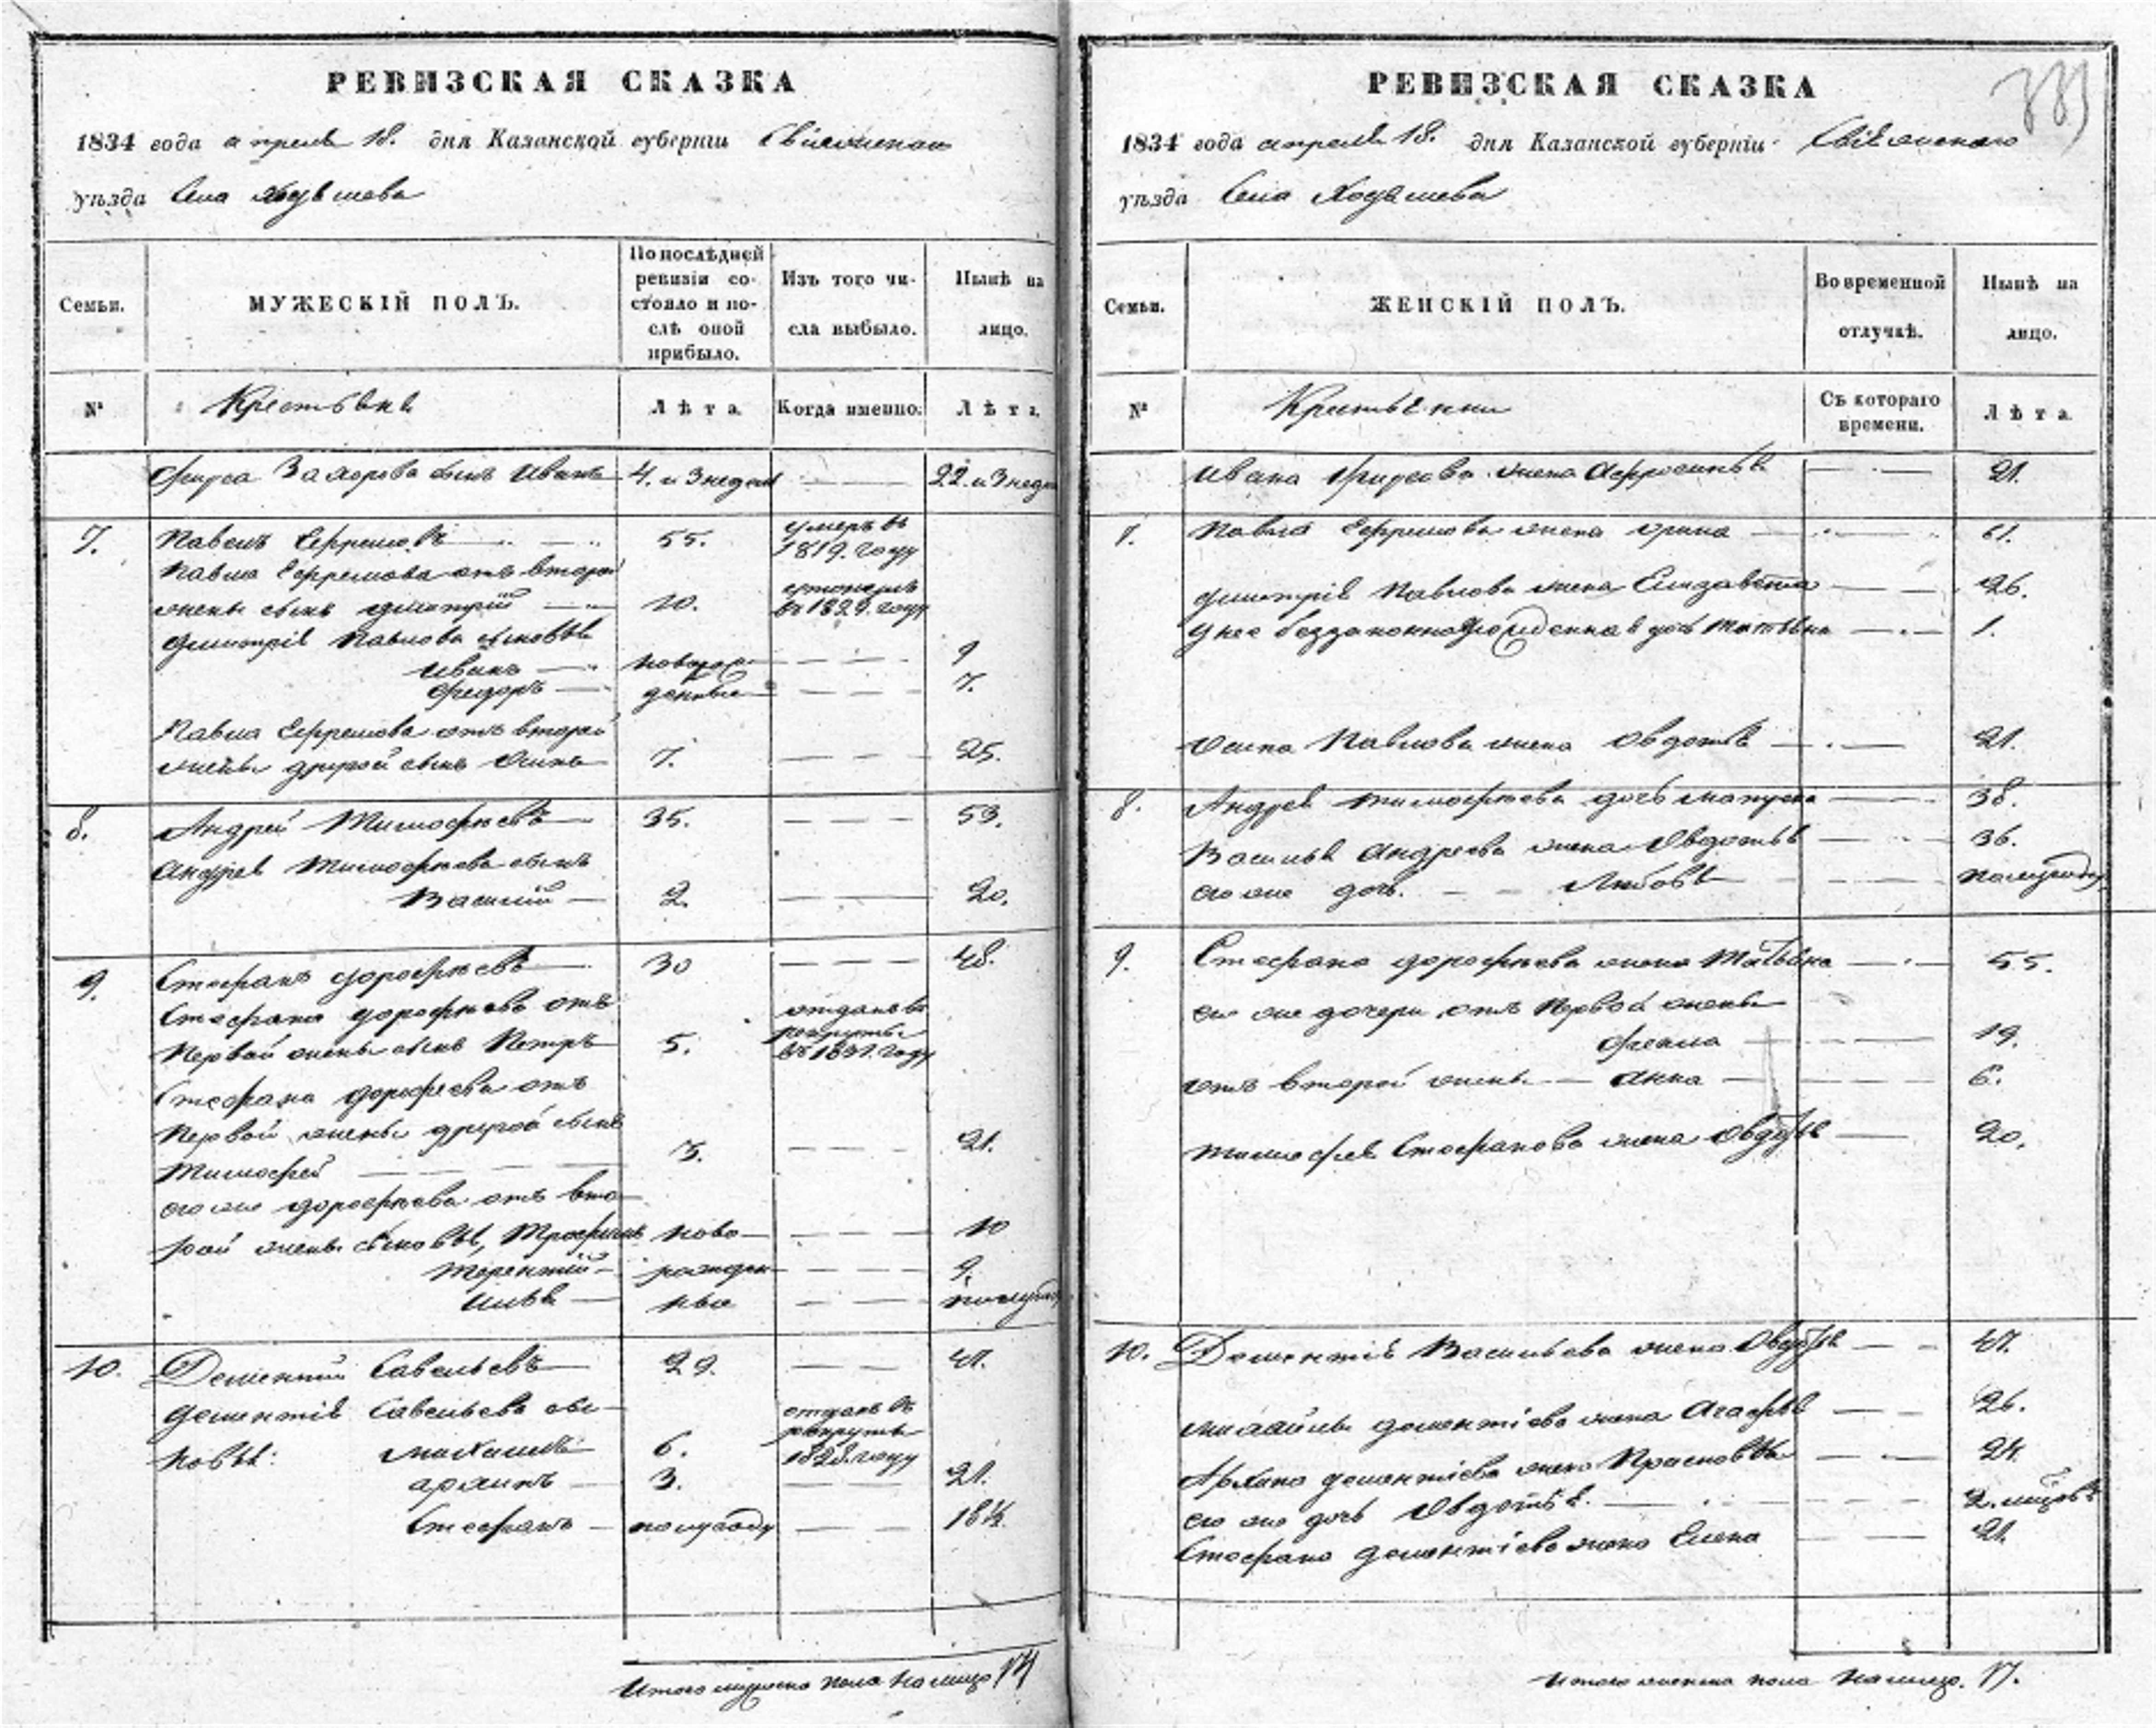 РЕВИЗСКАЯ СКАЗКА
1834 года апреля 18. дня Казанской губерніи Свіяжскаго
уѣзда Села Ходяшева
Семьи.
МУЖЕСКІЙ ПОЛЪ.
По послѣдней ревизіи состояло и послѣ оной прибыло.
Изъ того числа выбыло.
Нынѣ на лицо.
№
Крестьяне
Лѣта.
Когда именно.
Лѣта.
Фирса Захарова сынъ Иванъ 4. и 3 недели 22. и 3 недели
7. Павелъ Ефремовъ 55. умеръ въ 1819. году
Павла Ефремова отъ второй
жены сынъ Дмитрій 10. въ 1829. году
Дмитрія Павлова сыновья
Иванъ новорож- 9
Федоръ денные 7.
Павла Ефремова отъ второй
жены другой сынъ Осипъ 7. 25.
8. Андрей Тимофѣевъ 35. 53.
Андрея Тимофѣева сынъ
Василій 2. 20.
9. Стефанъ Дорофѣевъ 30 48.
Стефана Дорофѣева отъ
первой жены сынъ Петръ 5. отданъ въ рекруты въ 1831. году
Стефана Дорофеева отъ
первой жены другой сынъ
Тимофей 3. 21.
его же Дорофѣева отъ вто-
рой жены сыновья, Трофимъ ново- 10
Терентій рожден- 9.
Илья ные полугоду
10. Дементій Савельевъ 29. 47.
Дементія Савельева сы-
новья: Михаилъ 6. отданъ въ рекруты 1828. году
Архипъ 3. 21.
Стефанъ полугоду 18½.
Итого мужеска пола на лицо 14
РЕВИЗСКАЯ СКАЗКА
1834 года апреля 18. дня Казанской губерніи Свіяжскаго
уѣзда Села Ходяшева
Семьи.
ЖЕНСКІЙ ПОЛЪ.
Во временной отлучкѣ.
Нынѣ на лицо.
№
Крестьянки
Съ котораго времени.
Лѣта.
Ивана Фирсова жена Афросинья 21.
7. Павла Ефремова жена Орина 61.
Дмитрія Павлова жена Елизавета 26.
У нее беззаконнорожденная дочь Татьяна 1.
Осипа Павлова жена Овдотья 21.
8. Андрея Тимофѣева дочь 38.
Василья Андреева жена Овдотья 36.
его же дочь. Любовь полугоду
9. Стефана Дорофѣева жена Татьяна 55.
его же дочери отъ первой жены
Фекла 19.
отъ второй жены Анна 6.
Тимофея Стефанова жена Овдотья 20.
10. Дементія Васильева жена Овдотья 47.
Михайлы Дементіева жена Агафья 26.
Архипа Дементіева жена Прасковья 24.
его же дочь Овдотья. 2. мѣсяцовъ
Стефана Дементіева жена Елена 21.
Итого женска пола на лицо. 17.